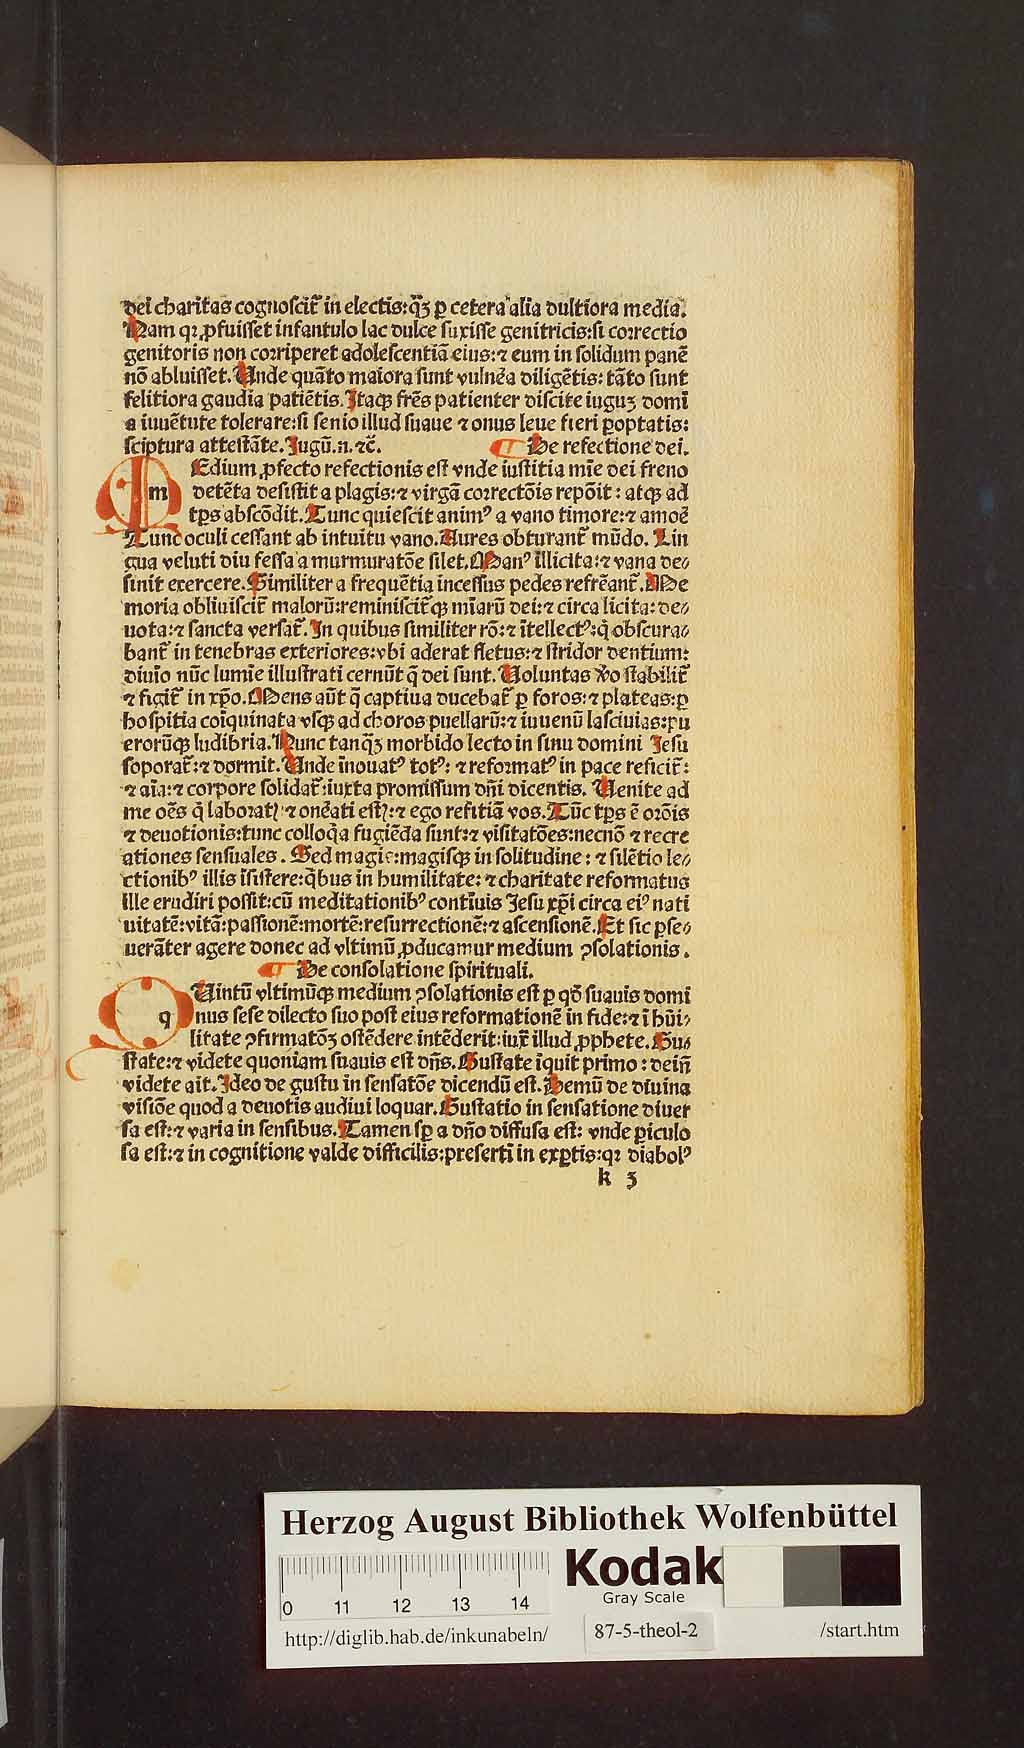 dei charitas cognoscit᷑ in electis:q̃ꝫ ꝑ cetera alia dultiora media.
Nam qꝛ ꝓfuisset infantulo lac dulce suxisse genitricis:si correctio
genitoris non corriperet adolescentiã eius:⁊ eum in solidum panẽ
nõ abluisset. Unde quãto maiora sunt vulnẽa diligẽtis: tãto sunt
felitiora gaudia patiẽtis. Itaqꝫ frẽs patienter discite iuguꝫ domī
a iuuẽtute tolerare:si senio illud suaue ⁊ onus leue fieri ꝑoptatis:
scriptura attestãte. Jugũ.n.⁊c̃. De refectione dei.
m Edium ꝓfecto refectionis est vnde iustitia mīe dei freno
detẽta desistit a plagis:⁊ virgã correctõis repõit: atqꝫ ad
tp̃s abscõdit. Tunc quiescit animꝰ a vano timore:⁊ amoẽ
Tunc oculi cessant ab intuitu vano. Aures obturant᷑ mũdo. Lin
gua veluti diu fessa a murmuratõe silet. Manꝰ illicita:⁊ vana de⸗
sinit exercere. Similiter a frequẽtia incessus pedes refrẽant᷑. Me
moria obliuiscit᷑ malorũ:reminiscit᷑qꝫ mīarũ dei:⁊ circa licita: de⸗
uota:⁊ sancta versat᷑. In quibus similiter rõ:⁊ ītellectꝰ:q̇ obscura⸗
bant᷑ in tenebras exteriores:vbi aderat fletus:⁊ stridor dentium:
diuīo nũc lumīe illustrati cernũt q̃ dei sunt. Voluntas ṽo stabilit᷑
⁊ figit᷑ in xp̃o. Mens aũt q̃ captiua ducebat᷑ ꝑ foros:⁊ plateas:ꝑ
hospitia coīquinata vsqꝫ ad choros puellarũ:⁊ iuuenũ lasciuias:pu
erorũqꝫ ludibria. Nunc tanq̃ꝫ morbido lecto in sinu domini Jesu
soporat᷑:⁊ dormit. Unde īnouatꝰ totꝰ: ⁊ reformatꝰ in pace reficit᷑:
⁊ aīa:⁊ corpore solidat᷑:iuxta promissum dñi dicentis. Venite ad
me oẽs q̇ laboratꝭ ⁊ onẽati estꝭ:⁊ ego refitiã vos. Tũc tp̃s ẽ orõis
⁊ deuotionis:tunc colloq̃a fugiẽda sunt:⁊ visitatões:necnõ ⁊ recre
ationes sensuales. Sed magis:magisqꝫ in solitudine: ⁊ silẽtio le⸗
ctionibꝰ illis īsistere:q̇bus in humilitate: ⁊ charitate reformatus
ille erudiri possit:cũ meditationibꝰ contīuis Jesu xp̃i circa eiꝰ nati
uitatẽ:vitã:passionẽ:mortẽ:resurrectionẽ:⁊ ascensionẽ. Et sic ꝑse⸗
uerãter agere donec ad vltimũ ꝓducamur medium ꝯsolationis.
De consolatione spirituali.
q Uintũ vltimũqꝫ medium ꝯsolationis est ꝑ qd̃ suauis domī
nus sese dilecto suo post eius reformationẽ in fide:⁊ ī hũi⸗
litate ꝯfirmatõꝫ ostẽdere intẽderit:iux̃ illud ꝓphete. Gu⸗
state:⁊ videte quoniam suauis est dñs. Gustate īquit primo: deiñ
videte ait. Ideo de gustu in sensatõe dicendũ est. Demũ de diuina
visiõe quod a deuotis audiui loquar. Gustatio in sensatione diuer
sa est:⁊ varia in sensibus. Tamen sꝑ a dño diffusa est: vnde ꝑiculo
sa est:⁊ in cognitione valde difficilis:presertī in exꝑtis:qꝛ diabolꝰ
k 3
Herzog August Bibliothek Wolfenbüttel
Kodak
Gray Scale
0 11 12 13 14
http://diglib.hab.de/inkunabeln/ 87-5-theol-2 /start.htm